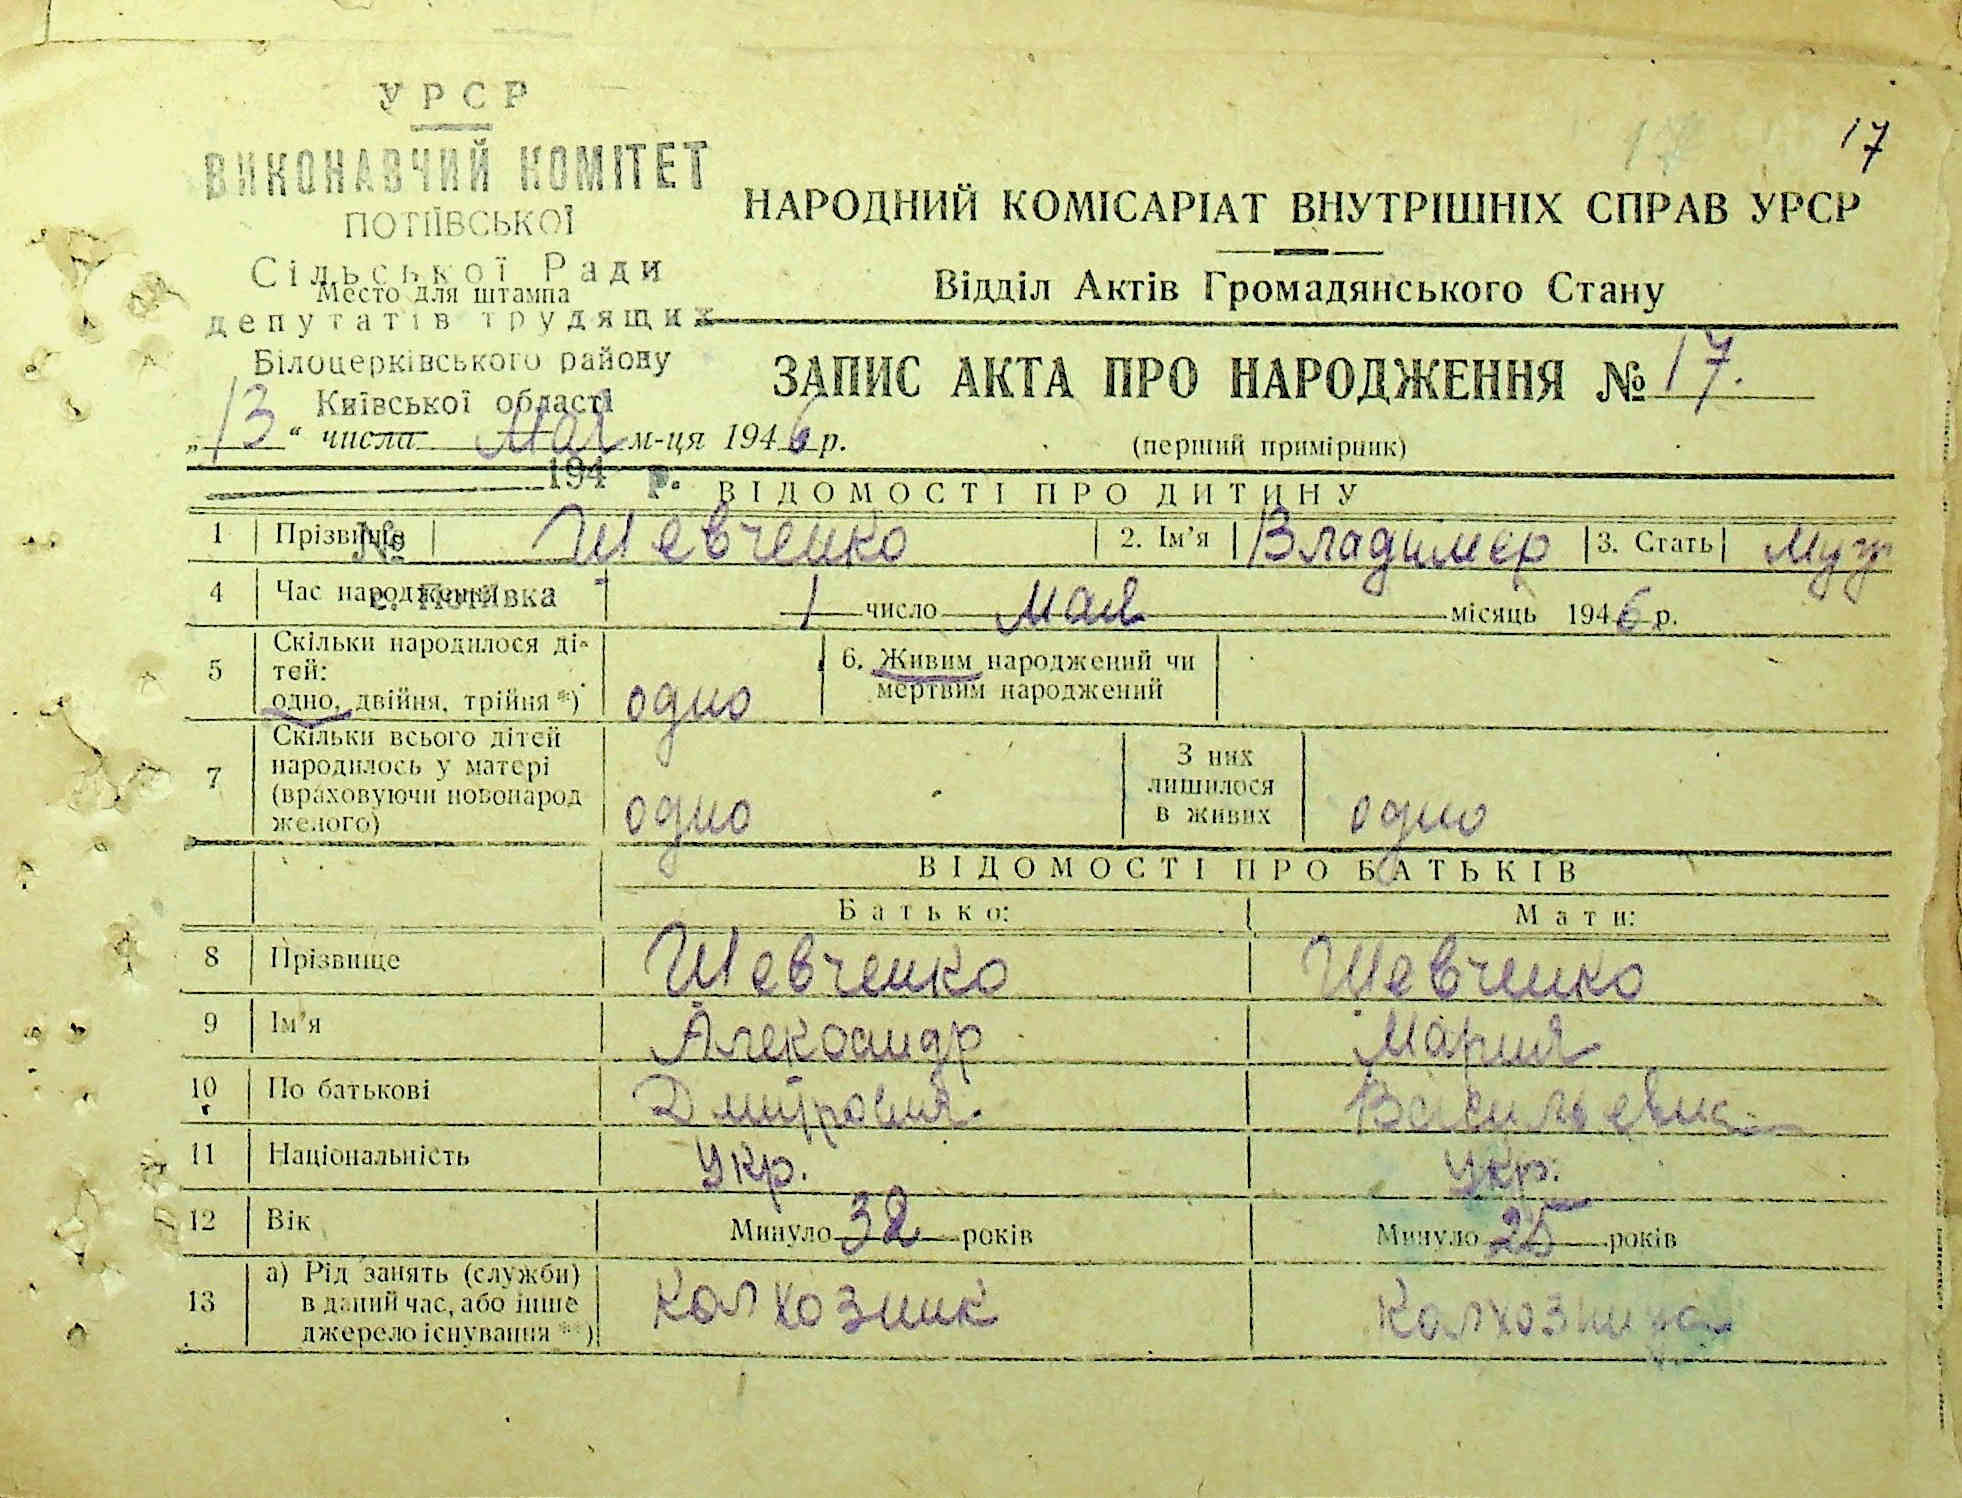 17
17
УРСР
ВИКОНАВЧИЙ КОМІТЕТ
ПОТІЇВСЬКОЇ
Сільської Ради
Место для штампа
депутатів трудящих
Білоцерківського району
Київської області
194 р.
№
с. Потіївка
НАРОДНИЙ КОМІСАРІАТ ВНУТРІШНІХ СПРАВ УРСР
Відділ Актів Громадянського Стану
ЗАПИС АКТА ПРО НАРОДЖЕННЯ № 17.
„13“ числа Мая м-ця 1946 р.
(перший примірник)
ВІДОМОСТІ ПРО ДИТИНУ
1 Прізвище Шевченко 2. Ім’я Владимер 3. Стать Муж
4 Час народження 1 число мая місяць 1946 р.
5 Скільки народилося ді-
тей:
одно, двійня, трійня *) одно
6. Живим народжений чи
мертвим народжений
7 Скільки всього дітей
народилось у матері
(враховуючи новонарод
желого) одно
З них
лишилося
в живих одно
ВІДОМОСТІ ПРО БАТЬКІВ
Батько: Мати:
8 Прізвище Шевченко Шевченко
9 Ім’я Александр Мария
10 По батькові Васильевна
11 Національність Укр. Укр.
12 Вік Минуло 32 років Минуло 25 років
13 а) Рід занять (служби)
в даний час, або інше
джерело існування **) Колхозник Колхозница